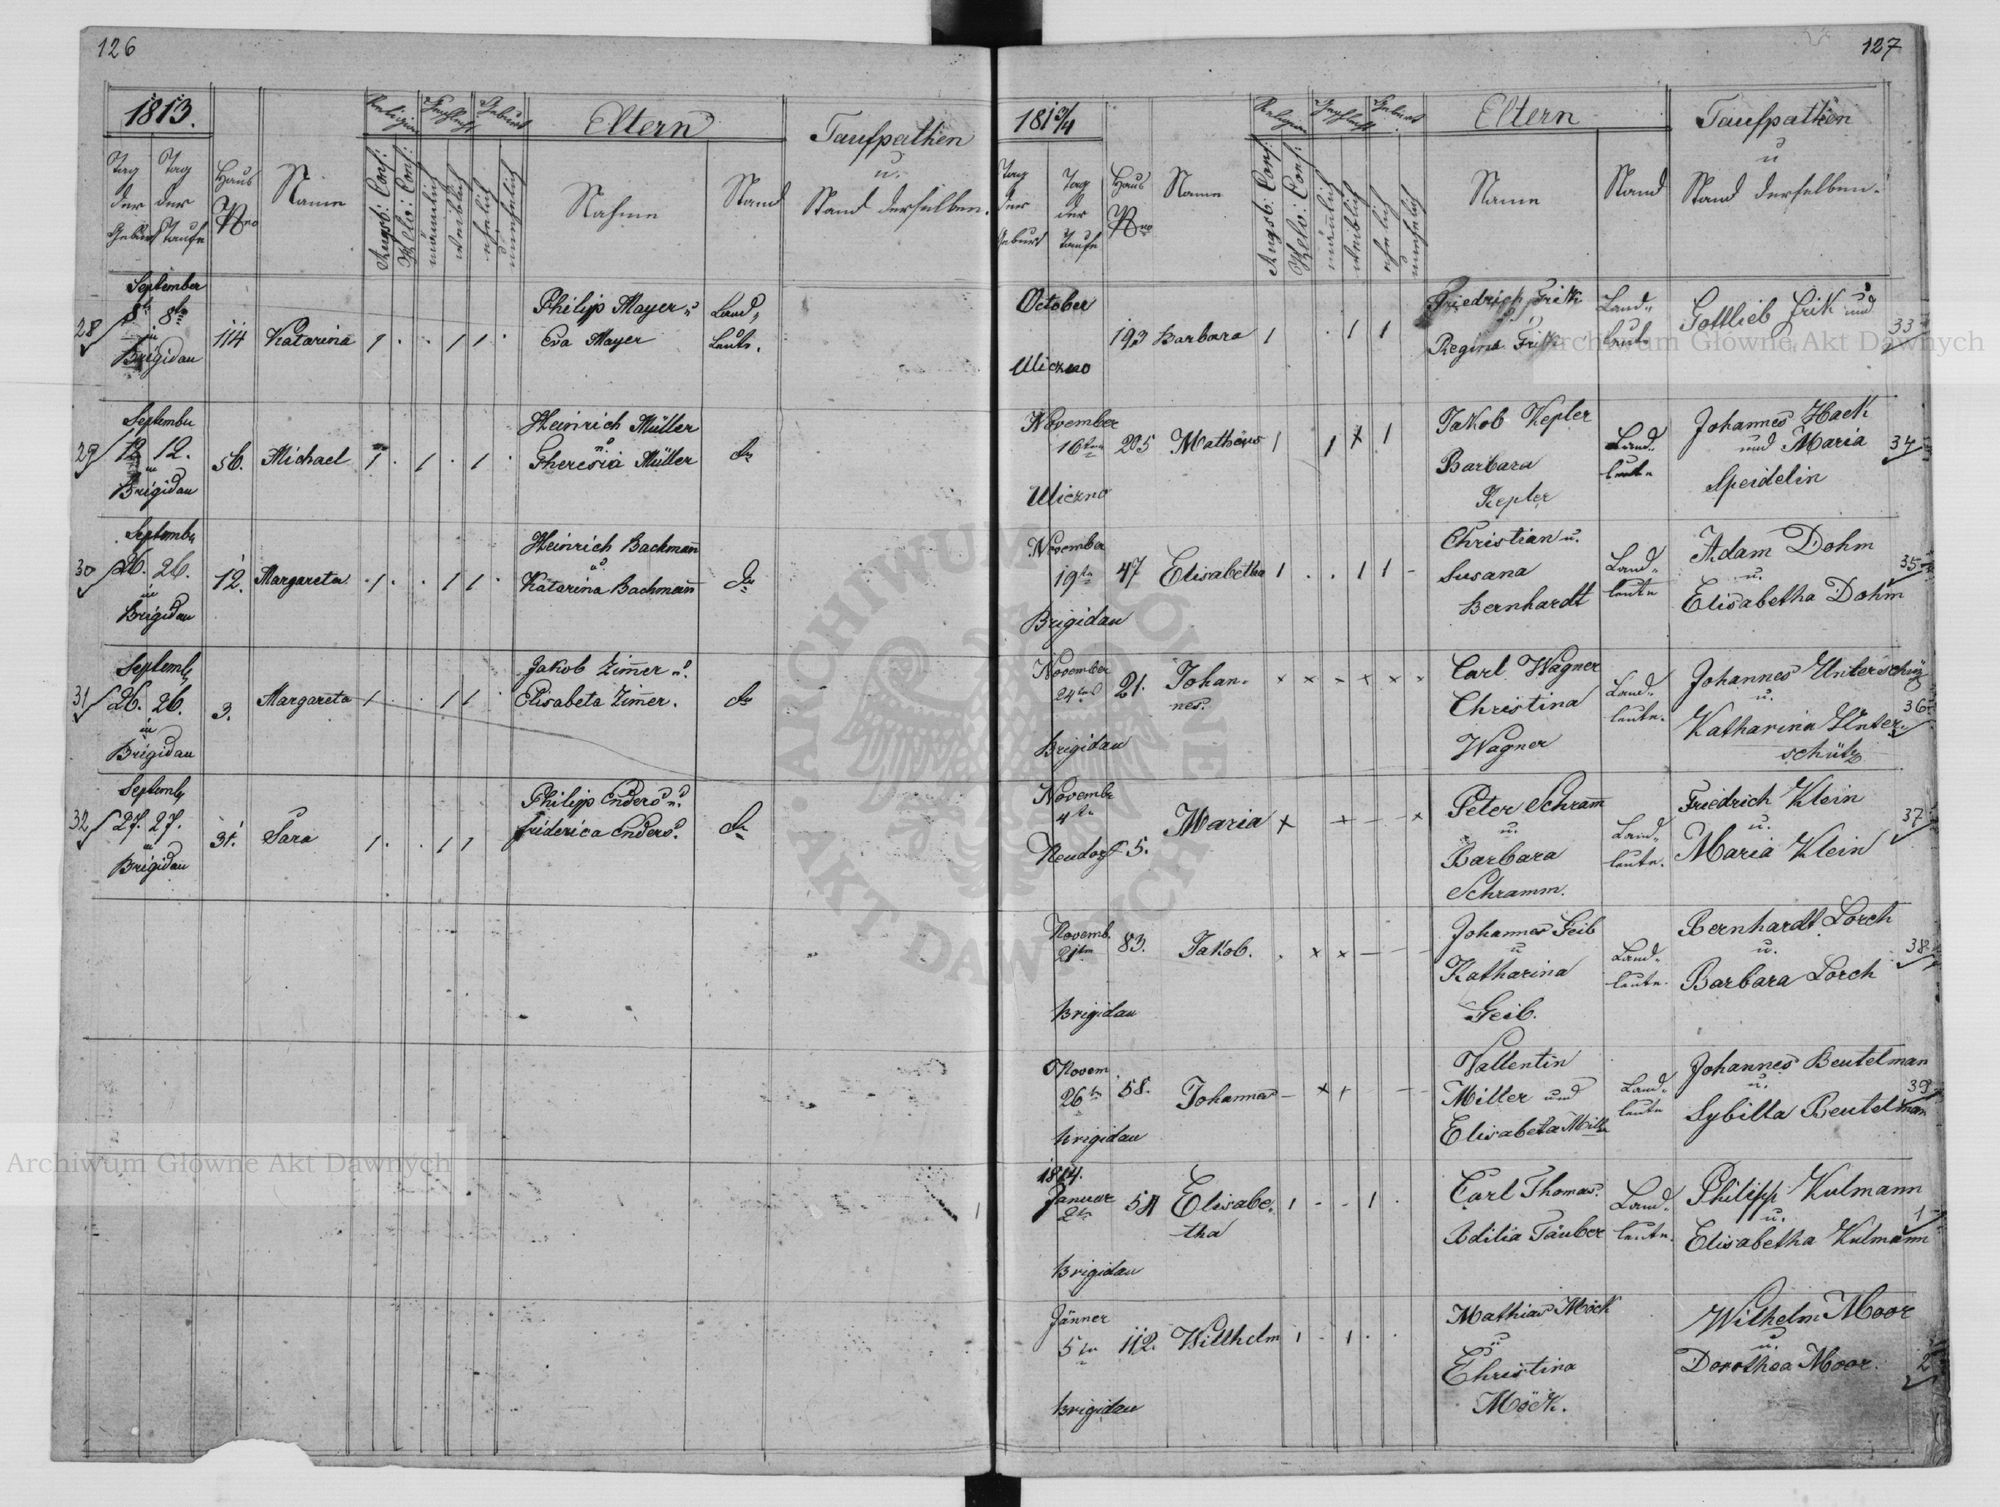 126
1813.
Religion
Geschlecht
Geburt
Eltern
Taufpathen
u.
Stand derselben.
Tag
der
Geburt
Tag
der
Taufe
Haus
Nro
Name
Augsb: Conf:
Helv: Conf:
männlich
weiblich
ehelich
unehelich
Nahme
Stand
September
8t 8ten
28
in
Brigidau
114 Katarina 1 . . 1 1 .
Philipp Mayer u.
Eva Mayer
Land-
leute.
September
29 12 12.
in
Brigidau
56. Michael 1 . 1 . 1 .
Heinrich Müller
u.
Theresia Müller
dto
September
30 26. 26.
in
Brigidau
12. Margareta . 1 . . 1 1 .
Heinrich Bachmann
u.
Katarina Bachmann
dto
Septemb
31 26. 26.
in
Brigidau
3. Margareta 1 . 1 1 .
Jakob Zimmer u.
Elisabeta Zimmer.
dto
Septemb
32 27. 27.
in
Brigidau
31. Sara 1 . . 1 1
Philipp Enders u.
Friderica Enders.
dto
127
1813/4
Religion
Geschlecht
Geburt
Eltern
Taufpathen
u
Stand derselben.
Tag
der
Geburt
Tag
der
Taufe
Haus
Nro
Name
Augsb: Conf:
Helv: Conf:
männlich
weiblich
ehelich
unehelich
Name
Stand
October
Uliczno
193 Barbara 1 . 1 1
Friedrich Frik
Regina Frik
Land-
leute
Gottlieb Frik und
33
November
16ten
Uliczno
205 Mathäus 1 1 + 1
Jakob Kepler
Barbara
Kepler
Land-
leute
Johannes Hack
und Maria
Speidelin
34
November
19ten
Brigidau
47 Elisabetha 1 . . 1 1 -
Christian u.
Susana
Bernhardt
Land-
leute
Adam Dohm
u.
Elisabetha Dohm
35
November
24ten
Brigidau
21. Johan-
nes. × × × × × ×
Carl Wagner
Christina
Wagner
Land-
leute.
Johannes Unterschütz
u.
Katharina Unter-
schütz
36
Novembr
4ten
Neudorf 5.
Maria × + - ×
Peter Schramm
u.
Barbara
Schramm.
Land-
leute.
Friedrich Klein
u.
Maria Klein
37
Novemb.
21ten
Brigidau
83. Jakob. . × × - - -
Johannes Geib
u
Katharina
Geib.
Land-
leute.
Bernhardt Lorch
u.
Barbara Lorch
38
Novem.
26ten
Brigidau
58. Johannes - × + - -
Vallentin
Miller und
Elisabeta Miller
Land-
leute
Johannes Beutelman
u.
Sybilla Beutelman
39
1814.
Januar
2ten
Brigidau
Elisabe-
tha 1 - - 1 .
Carl Thomas.
Odilia Täuber
Land-
leute.
Philipp Kulmann
u.
Elisabetha Kulmann
1
Jänner
5ten
Brigidau
112. Willhelm 1 . 1 . .
Mathias Möck
u
Christina
Möck.
Wilhelm Moor
u.
Dorothea Moor.
2
Archiwum Główne Akt Dawnych
Archiwum Główne Akt Dawnych
ARCHIWUM GŁÓWNE · AKT DAWNYCH ·